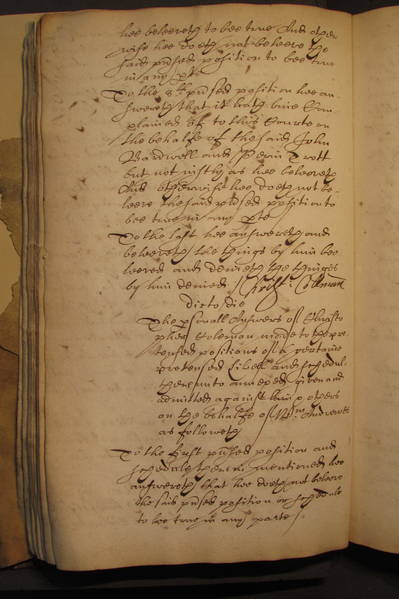 hee beleeveth to bee true And other
wise hee doeth not beleeve the
said pnsed position to bee true
in any pte
To the 8th pnsed position hee an
swereth that it hath bine Com
plained of to this Courte on
the behalfe of the said John
Bardwell and Trott
but not justly as hee beleeveth
And otherwise hee doeth not be
leeve the said pnsed position to
bee true in any pte
To the last hee answereth and
beleeveth the things by him bee
leeved and denieth the thinges
by him denied Coleman
dicto die
The psonall Answers of Christo
pher Coleman made to the pre
tensed positions of a certaine
pretensed libell and schedul
thereunto annexed given and
admitted against him others
on the behalfe of Andrewes
as followeth
To the first pnsed position and
schedule therein mentioned hee
answereth that hee doeth not beleeve
the said pnsed position or schedule
to be true in any parte